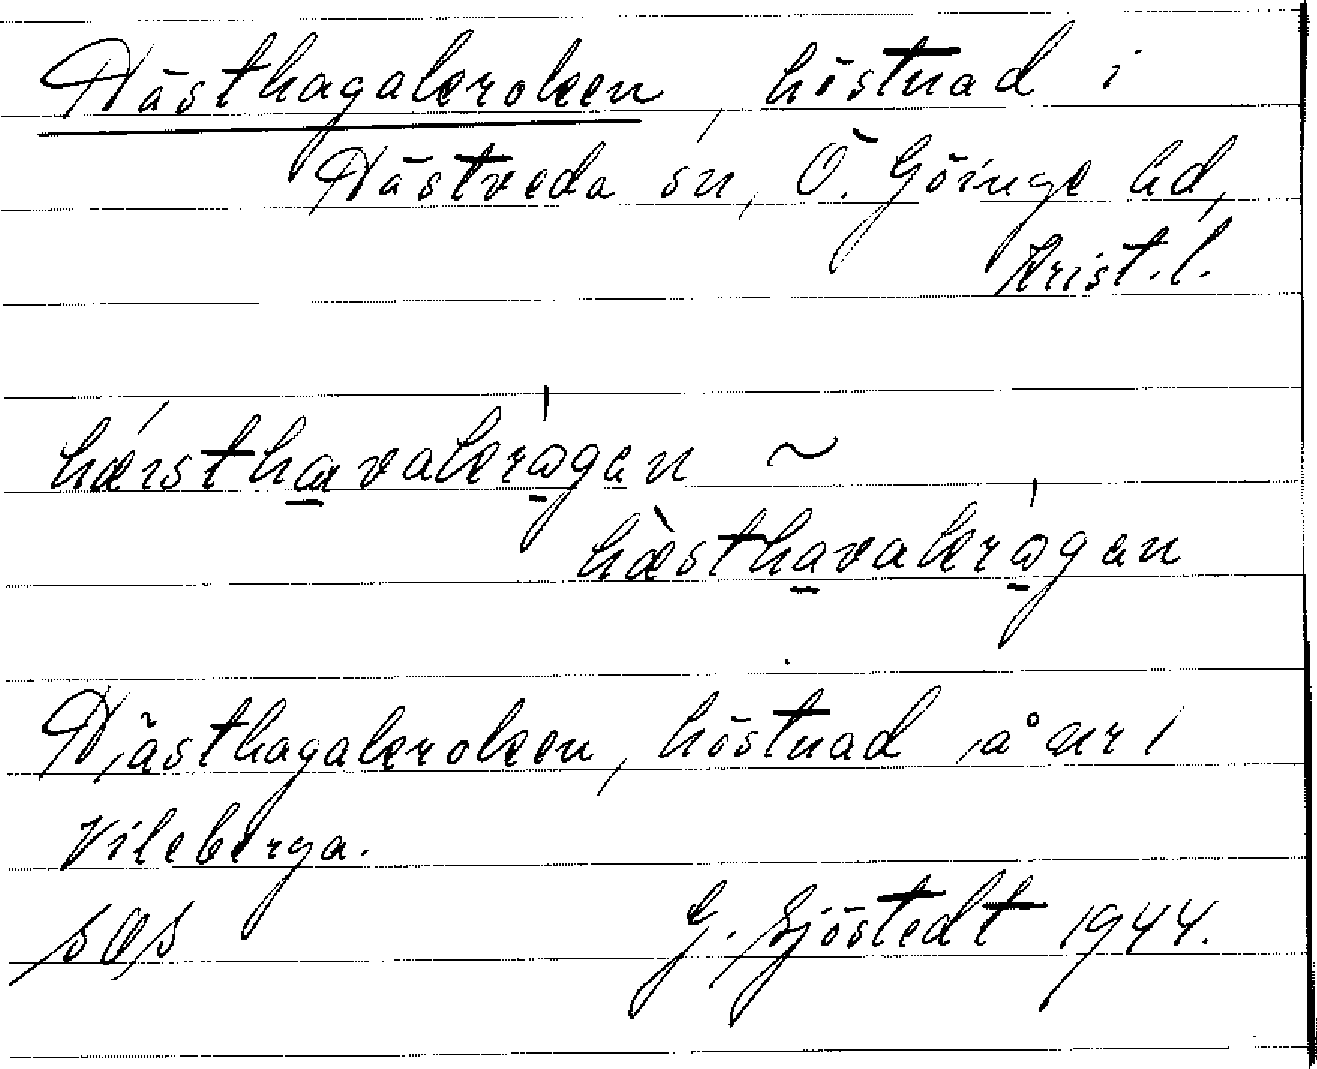 Hästhagakroken, höstnad i
Hästveda sn, Ö. Göinge hd,
Krist. l.
hæsthavakrågan ~
hæsthavakrågan
Hästhagakroken, höstnad å ær i
Vileberga.
SOS G. Sjöstedt 1944.